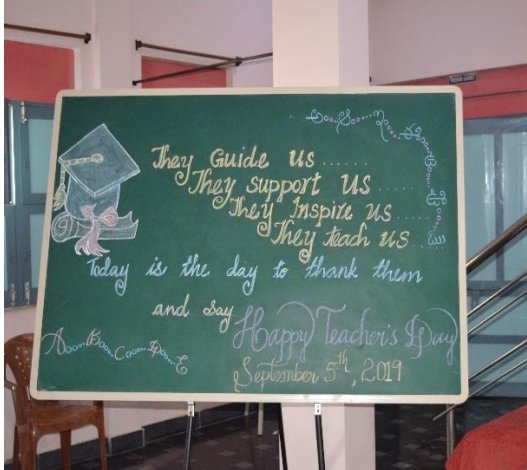 They Guide us ......
They support Us .....
They Inspire us ....
They teach us ...
Today is the day to thank them
and say Happy Teacher's Day
September 5th, 2019
A B C D E